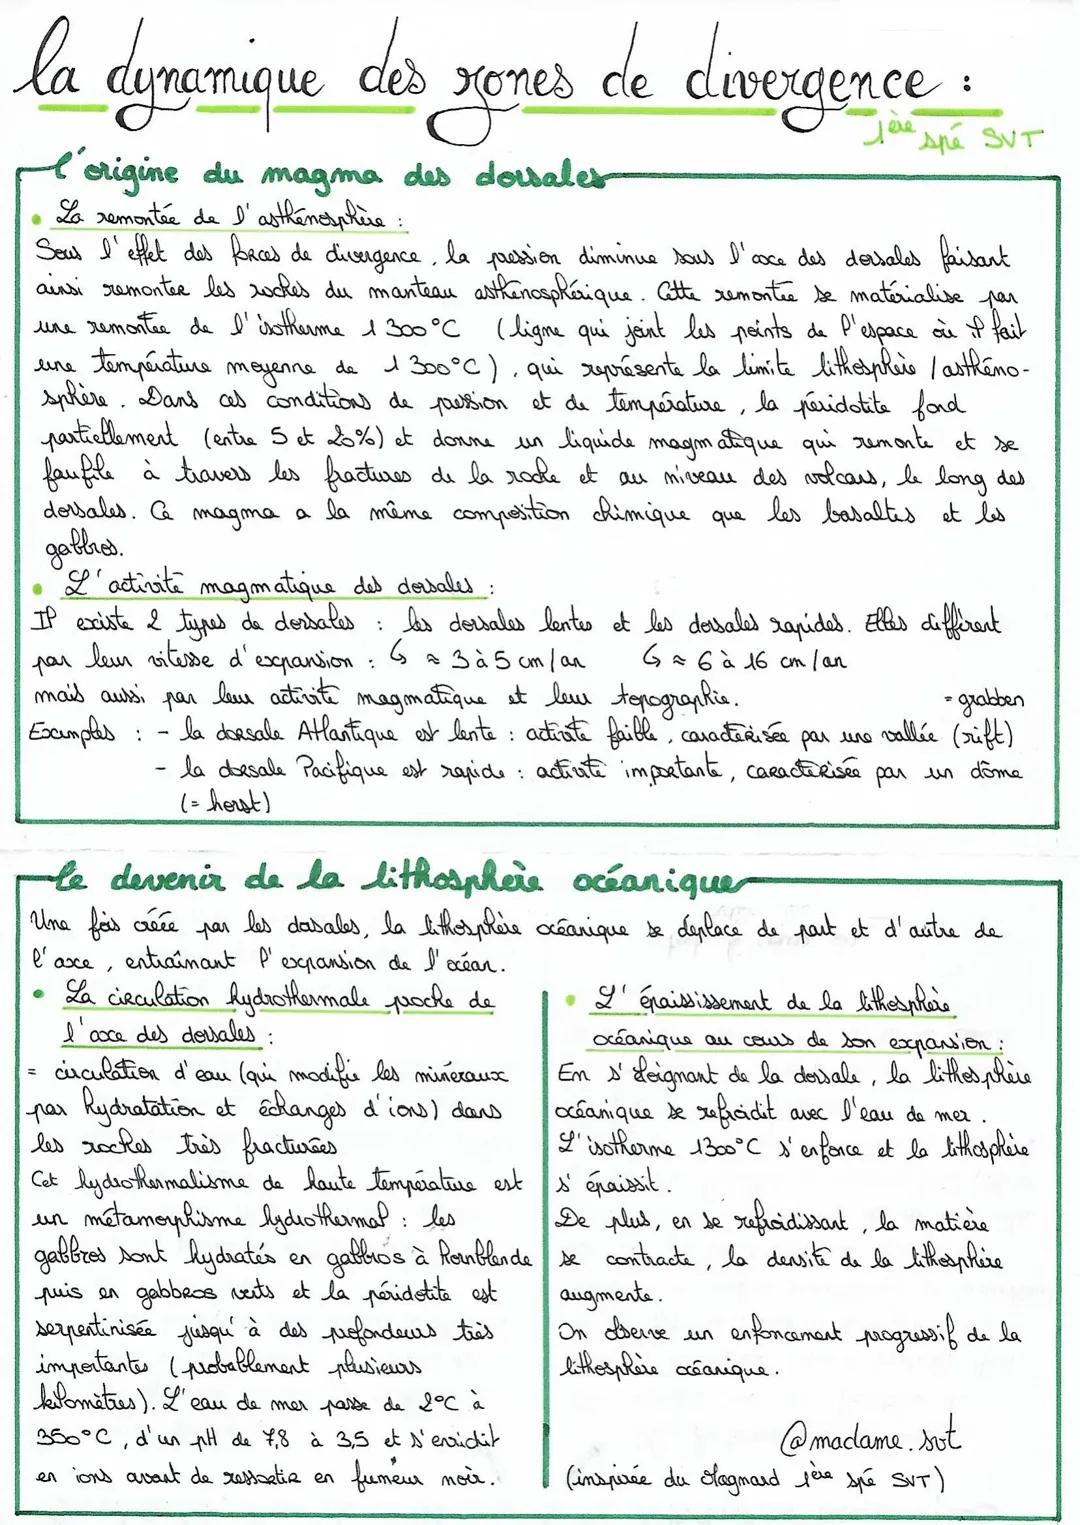 la dynamique des zones de divergence :
1ère spé SVT
l'origine du magma des dorsales
• La remontée de l'asthénosphère :
Sous l'effet des forces de divergence, la pression diminue sous l'axe des dorsales faisant
ainsi remonter les roches du manteau asthénosphérique. Cette remontée se matérialise par
une remontée de l'isotherme 1 300°C (ligne qui joint les points de l'espace où il fait
une température moyenne de 1 300°C), qui représente la limite lithosphère / asthéno-
sphère. Dans ces conditions de pression et de température, la péridotite fond
partiellement (entre 5 et 20%) et donne un liquide magmatique qui remonte et se
faufile à travers les fractures de la roche et au niveau des volcans, le long des
dorsales. Ce magma a la même composition chimique que les basaltes et les
gabbros.
• L'activité magmatique des dorsales :
Il existe 2 types de dorsales : les dorsales lentes et les dorsales rapides. Elles diffèrent
par leur vitesse d'expansion : ↳ ≈ 3 à 5 cm/an ↳ ≈ 6 à 16 cm/an
mais aussi par leur activité magmatique et leur topographie.
= grabben
Exemples : - la dorsale Atlantique est lente : activité faible, caractérisée par une vallée (rift)
- la dorsale Pacifique est rapide : activité importante, caractérisée par un dôme
(= horst)
le devenir de la lithosphère océanique
Une fois créée par les dorsales, la lithosphère océanique se déplace de part et d'autre de
l'axe, entraînant l'expansion de l'océan.
• La circulation hydrothermale proche de
l'axe des dorsales :
= circulation d'eau (qui modifie les minéraux
par hydratation et échanges d'ions) dans
les roches très fracturées
Cet hydrothermalisme de haute température est
un métamorphisme hydrothermal : les
gabbros sont hydratés en gabbros à hornblende
puis en gabbros verts et la péridotite est
serpentinisée jusqu'à des profondeurs très
importantes (probablement plusieurs
kilomètres). L'eau de mer passe de 2°C à
350°C, d'un pH de 7,8 à 3,5 et s'enrichit
en ions avant de ressortir en fumeur noir.
• L'épaississement de la lithosphère
océanique au cours de son expansion :
En s'éloignant de la dorsale, la lithosphère
océanique se refroidit avec l'eau de mer.
L'isotherme 1300°C s'enfonce et la lithosphère
s'épaissit.
De plus, en se refroidissant, la matière
se contracte, la densité de la lithosphère
augmente.
On observe un enfoncement progressif de la
lithosphère océanique.
@madame.svt
(inspirée du Magnard 1ère spé SVT)